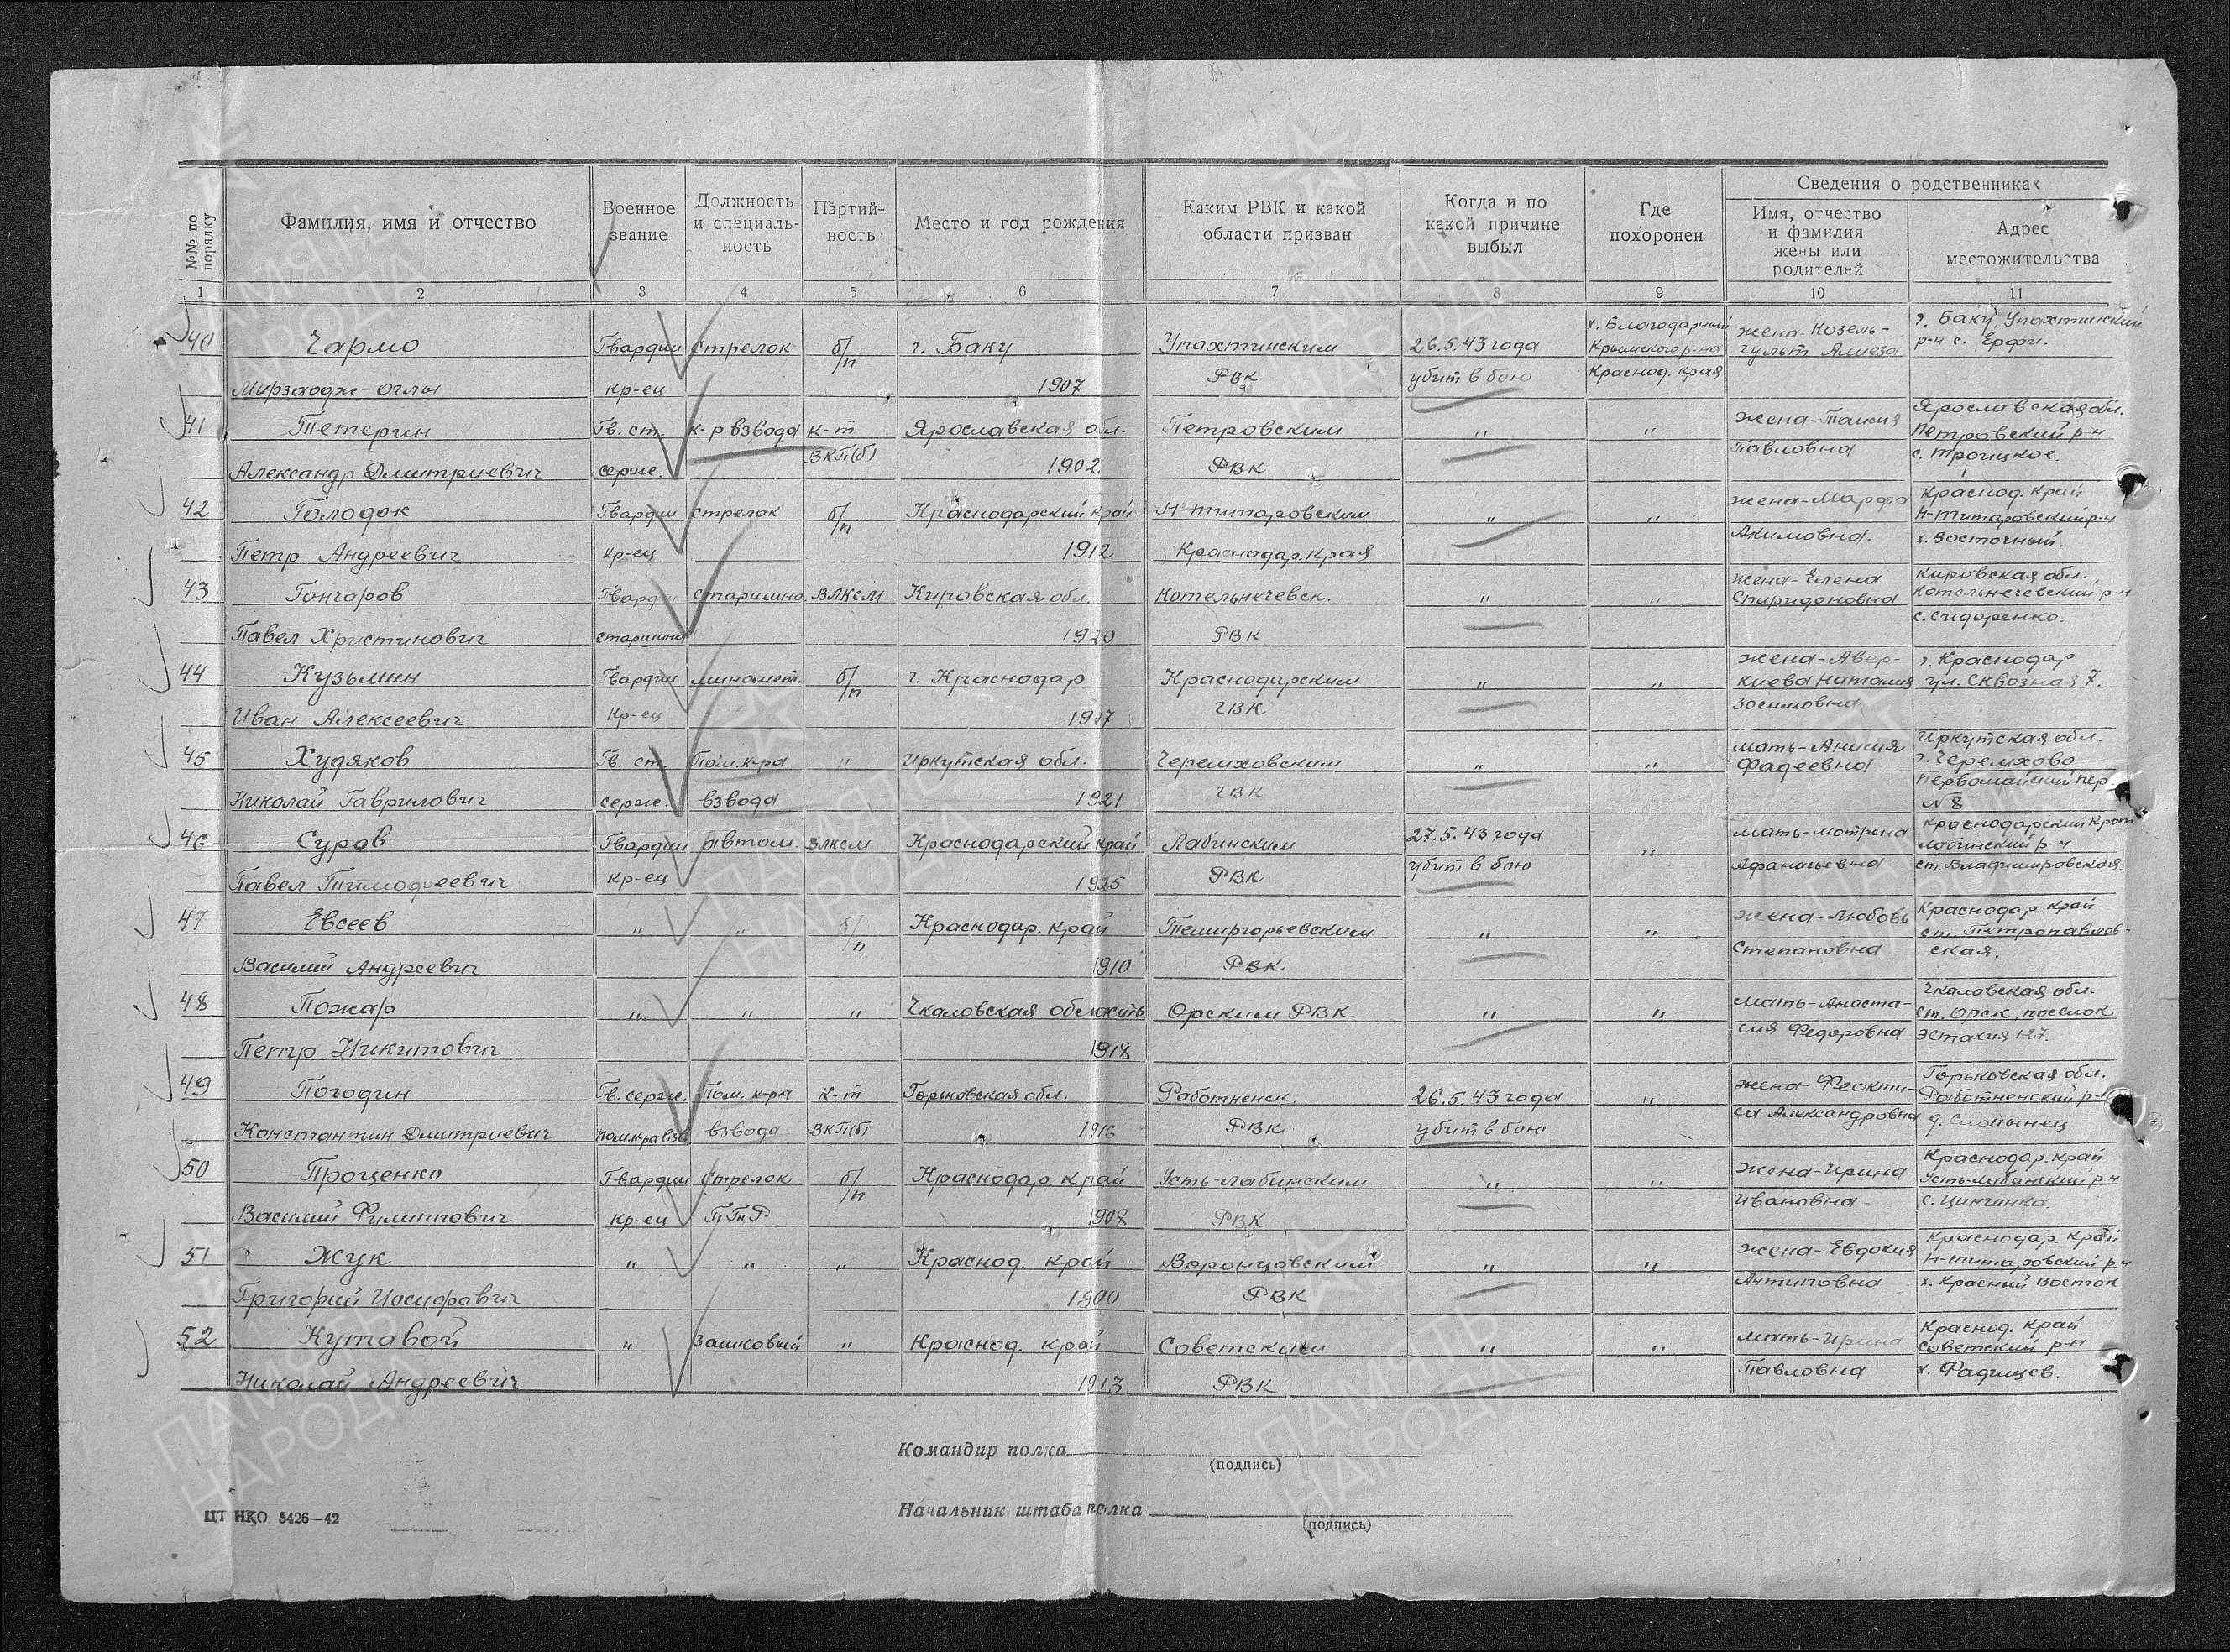 Сведения о родственниках
№№ по порядку
Фамилия, имя и отчество
Военное звание
Должность и специаль-ность
Партий-ность
Место и год рождения
Каким РВК и какой области призван
Когда и по какой причине выбыл
Где похоронен
Имя, отчество и фамилия жены или родителей
Адрес местожительства
1 2 3 4 5 6 7 8 9 10 11
40 Чармо Гвардии стрелок б/п г. Баку Упахтинским 26.5.43 года х. Благодарный Крымского р-на жена-Козель-гульт Алиева г. Баку, Упахтинский р-н с. Ерфи.
Мирзаодж-оглы кр-ец 1907 РВК убит в бою Краснод. края
41 Тетерин Гв. ст. к-р взвода к-т Ярославская обл. Петровским " " жена-Таисия Ярославская обл. Петровский р-н
Александр Дмитриевич серж. ВКП(б) 1902 РВК Павловна с. Троицкое.
42 Голодок Гвардии стрелок б/п Краснодарский край Н-титаровским " " жена-Марфа Краснод. край Н-титаровский р-н
Петр Андреевич кр-ец 1912 Краснодар. края Акимовна. х. Восточный.
43 Гончаров Гвардии старшина ВЛКСМ Кировская обл. Котельнечевск. " " жена-Елена Спиридоновна Кировская обл. Котельнечевский р-н
Павел Христинович старшина 1920 РВК с. Сидоренко.
44 Кузьмин Гвардии миномет. б/п г. Краснодар Краснодарским " " жена-Авер-киева Наталия г. Краснодар ул. Сквозная 7.
Иван Алексеевич кр-ец 1907 ГВК Зосимовна
45 Худяков Гв. ст. Пом. к-ра " Иркутская обл. Черемховским " " мать-Анисия Фадеевна Иркутская обл. г. Черемхово
Николай Гаврилович серж. взвода 1921 ГВК Первомайский пер. № 8
46 Суров Гвардии автом. ВЛКСМ Краснодарский край Лабинским 27.5.43 года " мать-Мотрена Краснодарский край Лабинский р-н
Павел Тимофеевич кр-ец 1925 РВК убит в бою Афанасьевна ст. Владимировская.
47 Евсеев " " б/п Краснодар. край Темиргорьевским " " жена-Любовь Краснодар. край ст. Петропавлов-
Василий Андреевич 1910 РВК Степановна ская.
48 Пожар " " " Чкаловская область Орским РВК " " мать-Анаста- Чкаловская обл. ст. Орск, поселок
Петр Никитович 1918 сия Федоровна
49 Погодин Гв. серж. Пом. к-ра к-т Горьковская обл. Работненск. 26.5.43 года " жена-Феокти- Горьковская обл. Работненский р-н
Константин Дмитриевич пом. к-ра взв. взвода ВКП(б) 1916 РВК убит в бою са Александровна д. Слопынец
50 Проценко Гвардии стрелок б/п Краснодар. край Усть-лабинским " " жена-Ирина Краснодар. край Усть-лабинский р-н
Василий Филиппович кр-ец ПТР 1908 РВК Ивановна -
51 Жук " " " Краснод. край Воронцовский " " жена-Евдокия Краснодар. край Н-титаровский р-н
Григорий Иосифович 1900 РВК Антиповна х. Красный Восток
52 Кутавой " Замковый " Краснод. край Советским " " мать-Ирина Краснод. край Советский р-н
Николай Андреевич 1913 РВК Павловна х. Фадищев.
Командир полка
(подпись)
Начальник штаба полка
(подпись)
ЦТ НКО 5426—42
ПАМЯТЬ НАРОДА
ПАМЯТЬ НАРОДА
ПАМЯТЬ НАРОДА
ПАМЯТЬ НАРОДА
ПАМЯТЬ НАРОДА